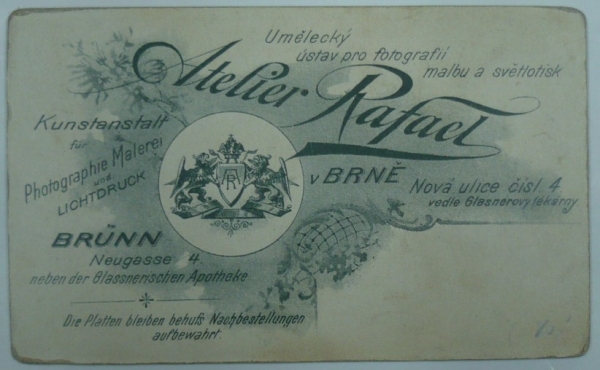 Umělecký
ústav pro fotografii
malbu a světlotisk
Atelier Rafael
v BRNĚ
Nová ulice čísl. 4.
vedle Glasnerovy lékárny.
Kunstanstalt
für
Photographie Malerei
und
LICHTDRUCK
AR
BRÜNN
Neugasse 4.
neben der Glassnerischen Apotheke
Die Platten bleiben behufs Nachbestellungen
aufbewahrt.